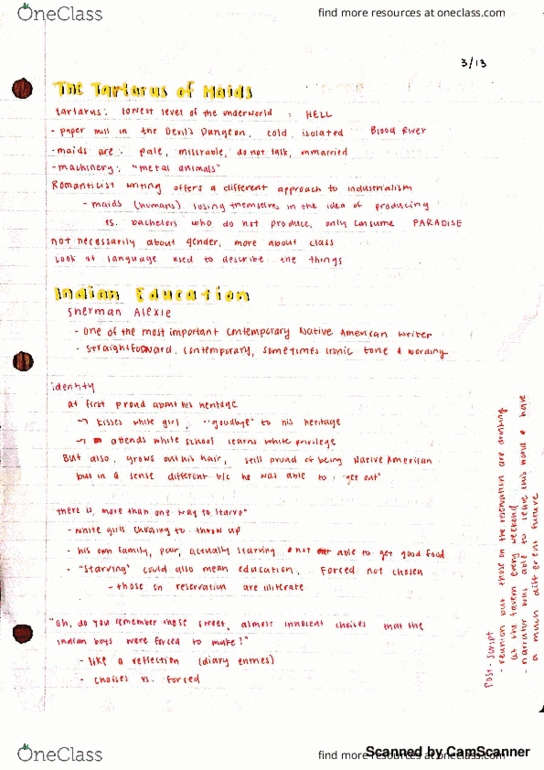 OneClass
find more resources at oneclass.com
3/13
The Tartarus of Maids
tartarus: lowest level of the underworld : HELL
- paper mill in the Devil's Dungeon, cold, isolated Blood River
- maids are: pale, miserable, do not talk, unmarried
- machinery: "metal animals"
Romanticist writing offers a different approach to industrialism
- maids (humans) losing themselves in the idea of producing
vs. bachelors who do not produce, only consume PARADISE
not necessarily about gender, more about class
look at language used to describe the things
Indian Education
Sherman Alexie
- one of the most important contemporary Native American writer
- straightforward, contemporary, sometimes ironic tone & wording
identity
at first proud about his heritage
→ kisses white girl, "goodbye" to his heritage
→ attends white school learns white privilege
But also, grows out his hair, still proud of being Native American
but in a sense different b/c he was able to "get out"
there is, more than one way to starve"
- white girls choosing to throw up
- his own family, poor, actually starving & not able to get good food
- "starving" could also mean education, forced not chosen
- those on reservation are illiterate
"oh, do you remember those sweet, almost innocent choices that the
Indian boys were forced to make?"
- like a reflection (diary entries)
- choices vs. forced
Post-script
- reunion but those on the reservation are drinking
at the tavern every weekend
- narrator was able to leave this world & have
a much different future
OneClass
find more resources at oneclass.com
Scanned by CamScanner